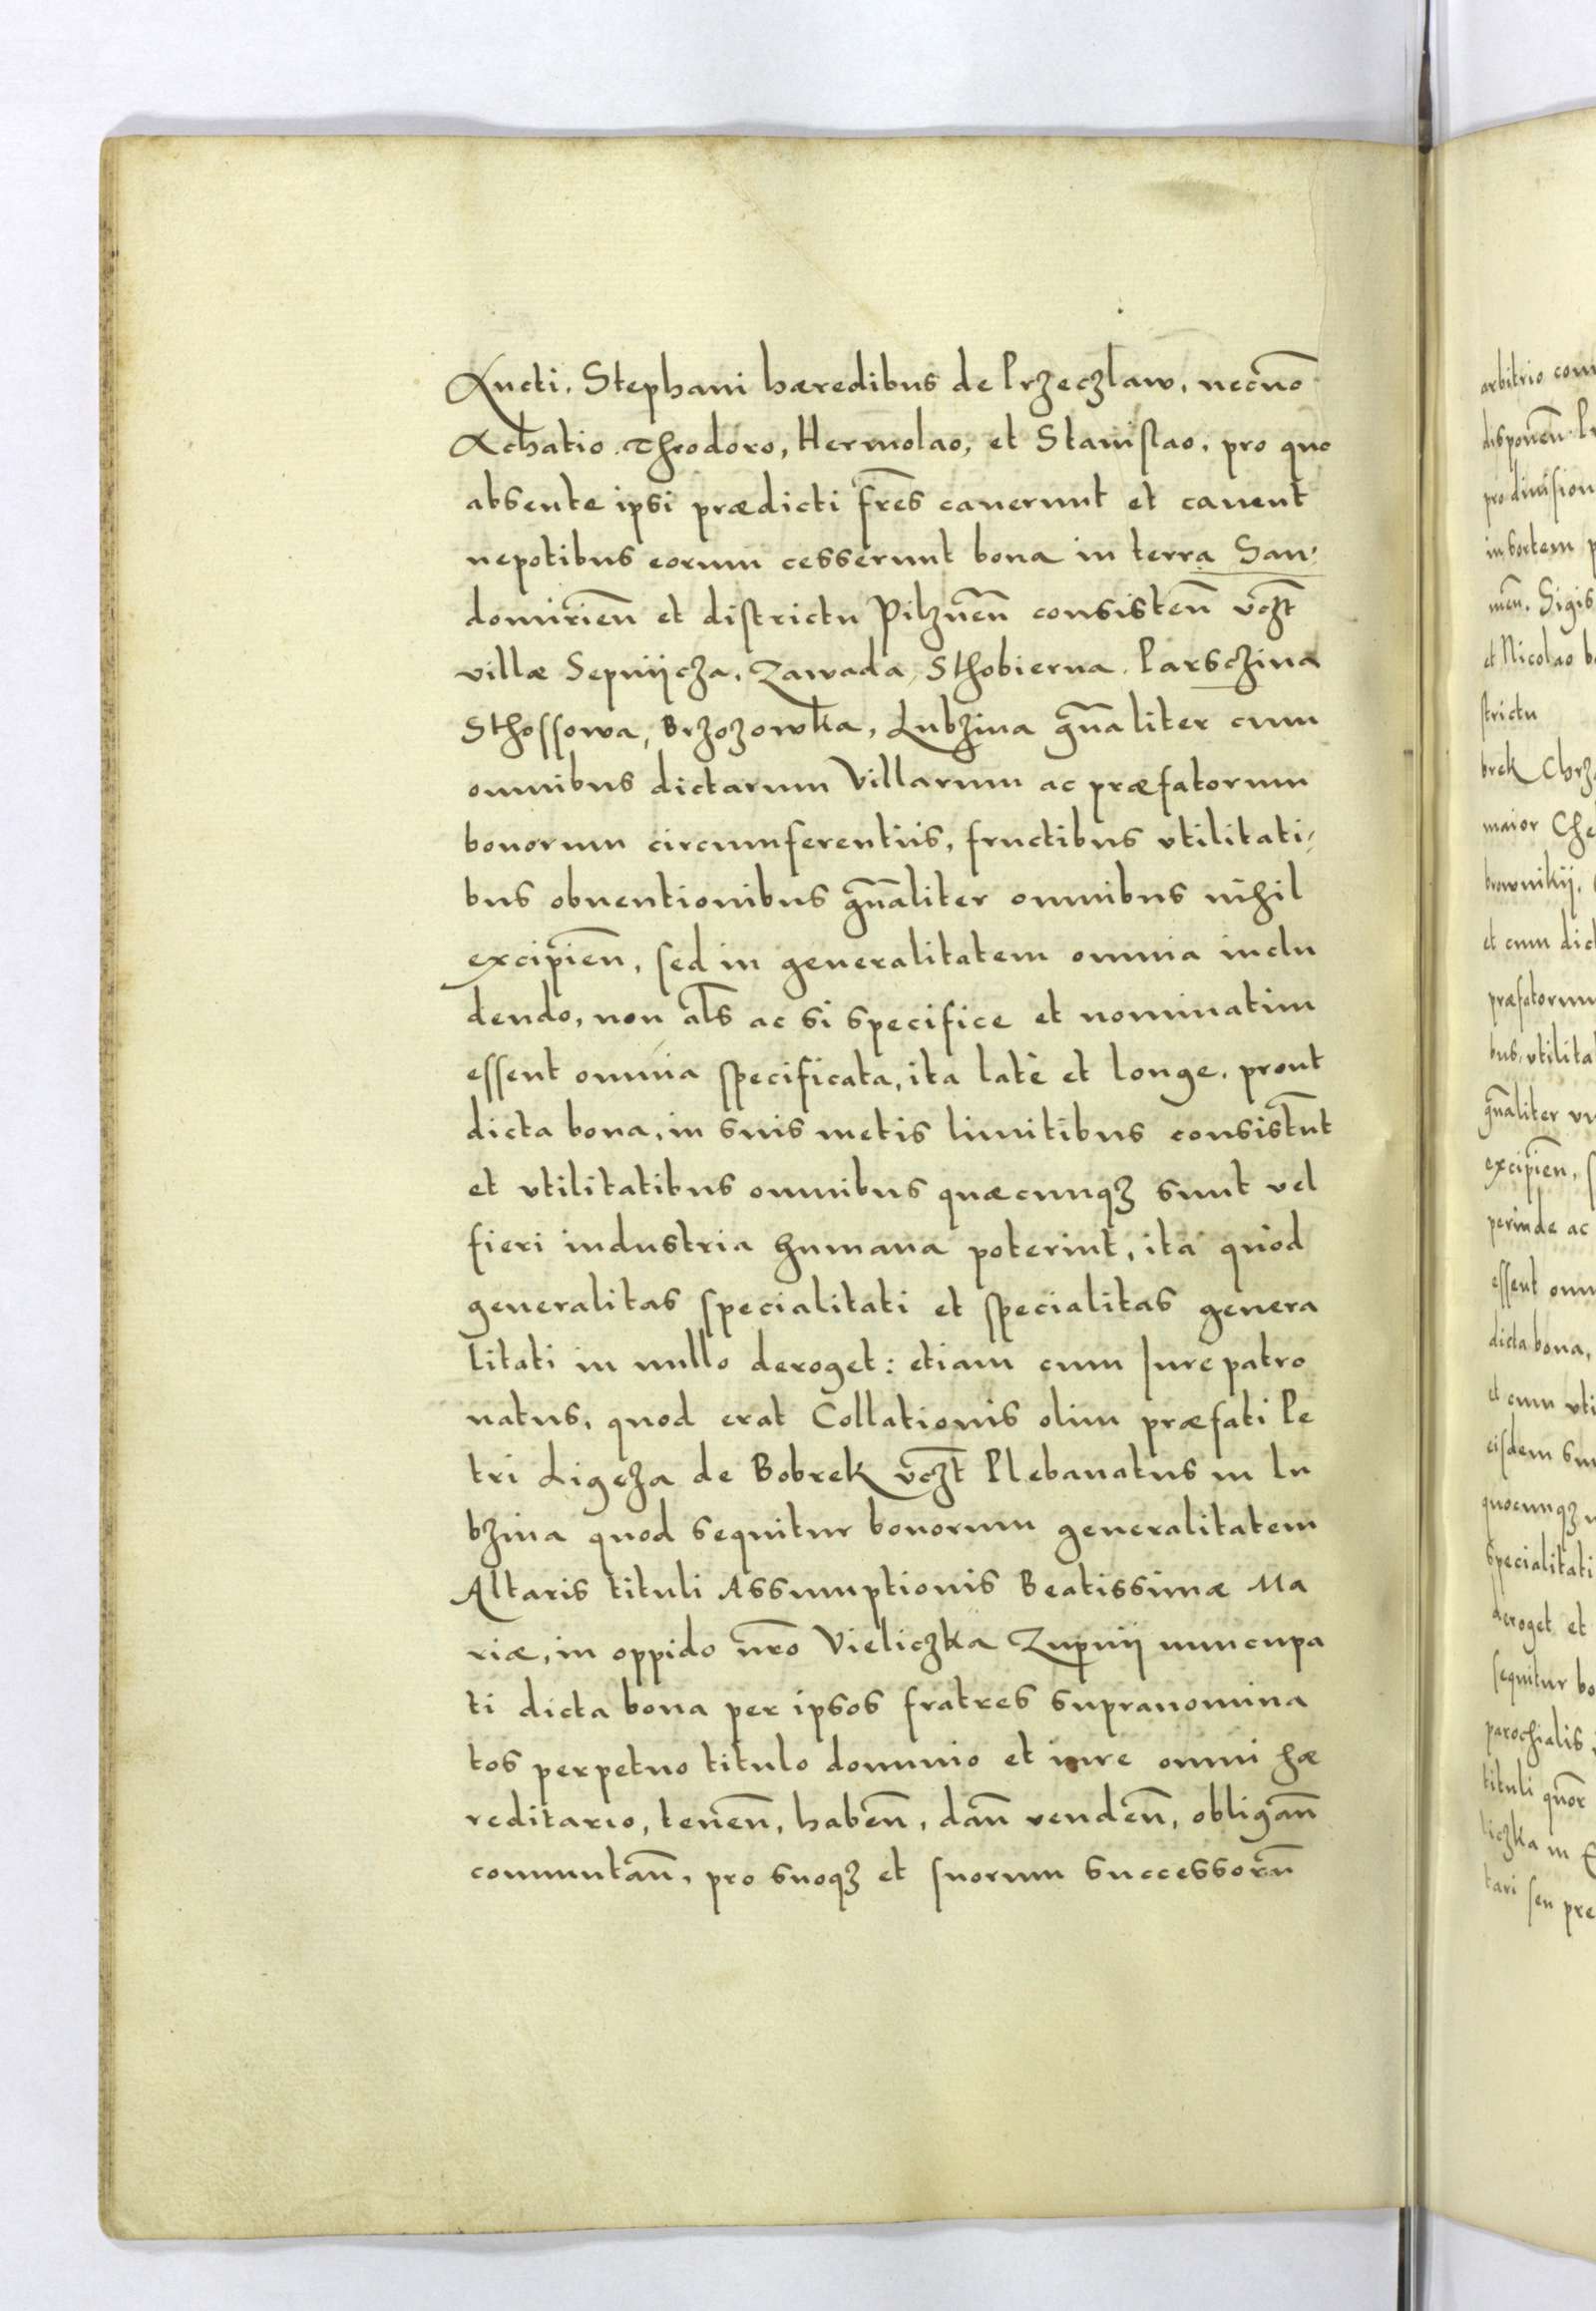 Aucti. Stephani hæredibus de Przeczlaw, necnō
Achatio. Theodoro, Hermolao, et Stanislao, pro quo
absente ipsi prædicti fr̄es cauerunt et cauent
nepotibus eorum cesserunt bona in terra San-
domirieñ et districtu Pilzneñ consisteñ vcz̄t
villæ Sepnijcza, Zawada, Sthobierna. Parsczina
Sthossowa, Brzozowka, Lubzina gn̄aliter cum
omnibus dictarum Villarum ac præfatorum
bonorum circumferentiis, fructibus vtilitati-
bus obuentionibus gn̄aliter omnibus nihil
excipieñ, sed in generalitatem omnia inclu
dendo, non al̄s ac si specifice et nominatim
essent omnia specificata, ita latè et longe. prout
dicta bona, in suis metis limitibus consistūt
et vtilitatibus omnibus quæcunqꝫ sunt vel
fieri industria humana poterint, ita quòd
generalitas specialitati et specialitas genera
litati in nullo deroget: etiam cum Iure patro
natus, quod erat Collationis olim præfati Pe
tri Ligęza de Bobrek vcz̄t Plebanatus in Lu
bzina quod sequitur bonorum generalitatem
Altaris tituli Assumptionis Beatissimæ Ma
riæ, in oppido nr̄o Vieliczka Zupnij nuncupa
ti dicta bona per ipsos fratres supranomina
tos perpetuo titulo dominio et iure omni hæ
reditario, teneñ, habeñ, dañ vendeñ, obligañ
commutañ, pro suoqꝫ et suorum successorū
arbitrio com
disponeñ. Pr
pro diuision
in sortem p
meñ. Sigis
et Nicolao b
strictu
brek Chrz
maior Che
brownikij,
et cum dict
præfatorum
bus, vtilita
gn̄aliter vn
excipieñ, s
perinde ac
essent omn
dicta bona,
et cum vti
eisdem sun
quocunqꝫ
specialitati
deroget et
sequitur bo
parochialis
tituli quor̄
liczka in
tari seu pre